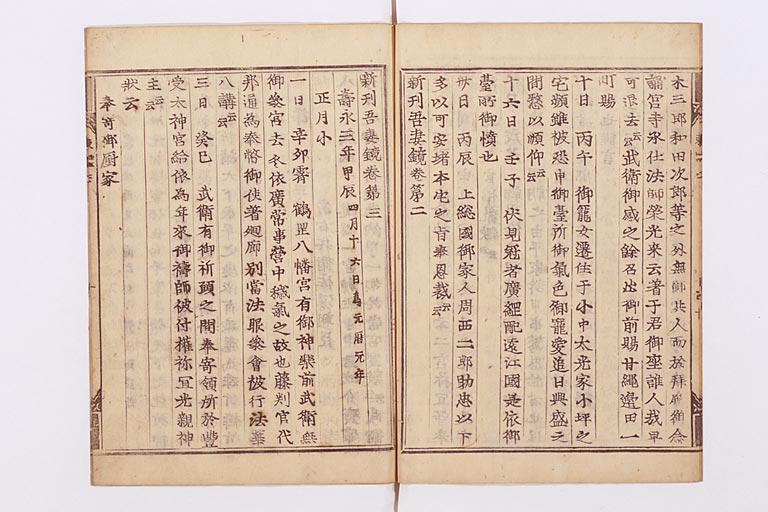 木三郎和田次郎等之外無御共人而於拜府御念
誦宮寺承仕法師榮光来云着于君御座誰人哉早
可退去云云武衛御感之餘召出御前賜甘縄邊田一
町賜也
十日　丙午　御寵女遷住于小中太光家小坪之
宅頻雖被恐申御臺所御氣色御寵愛追日興盛之
間憖以順仰云云
十六日　壬子　伏見冠者廣經配遠江國是依御
臺所御憤也
卅日　丙辰　上総國御家人周西二郎助忠以下
多以可安堵本宅之旨奉恩裁云云
新刊吾妻鏡卷第二
新刊吾妻鏡卷第三
壽永三年甲辰　四月十六日為元暦元年
正月小
一日　辛夘霽　鶴岡八幡宮有御神樂前武衛無
御參宮去冬依廣常事營中穢氣之故也藤判官代
邦通為奉幣御使着廻廊別當法眼參會被行法華
八講云云
三日　癸巳　武衛有御祈願之間奉寄領所於豐
受太神宮給依為年来御禱師被付權祢冝光親神
主云云
状云
奉寄御厨家